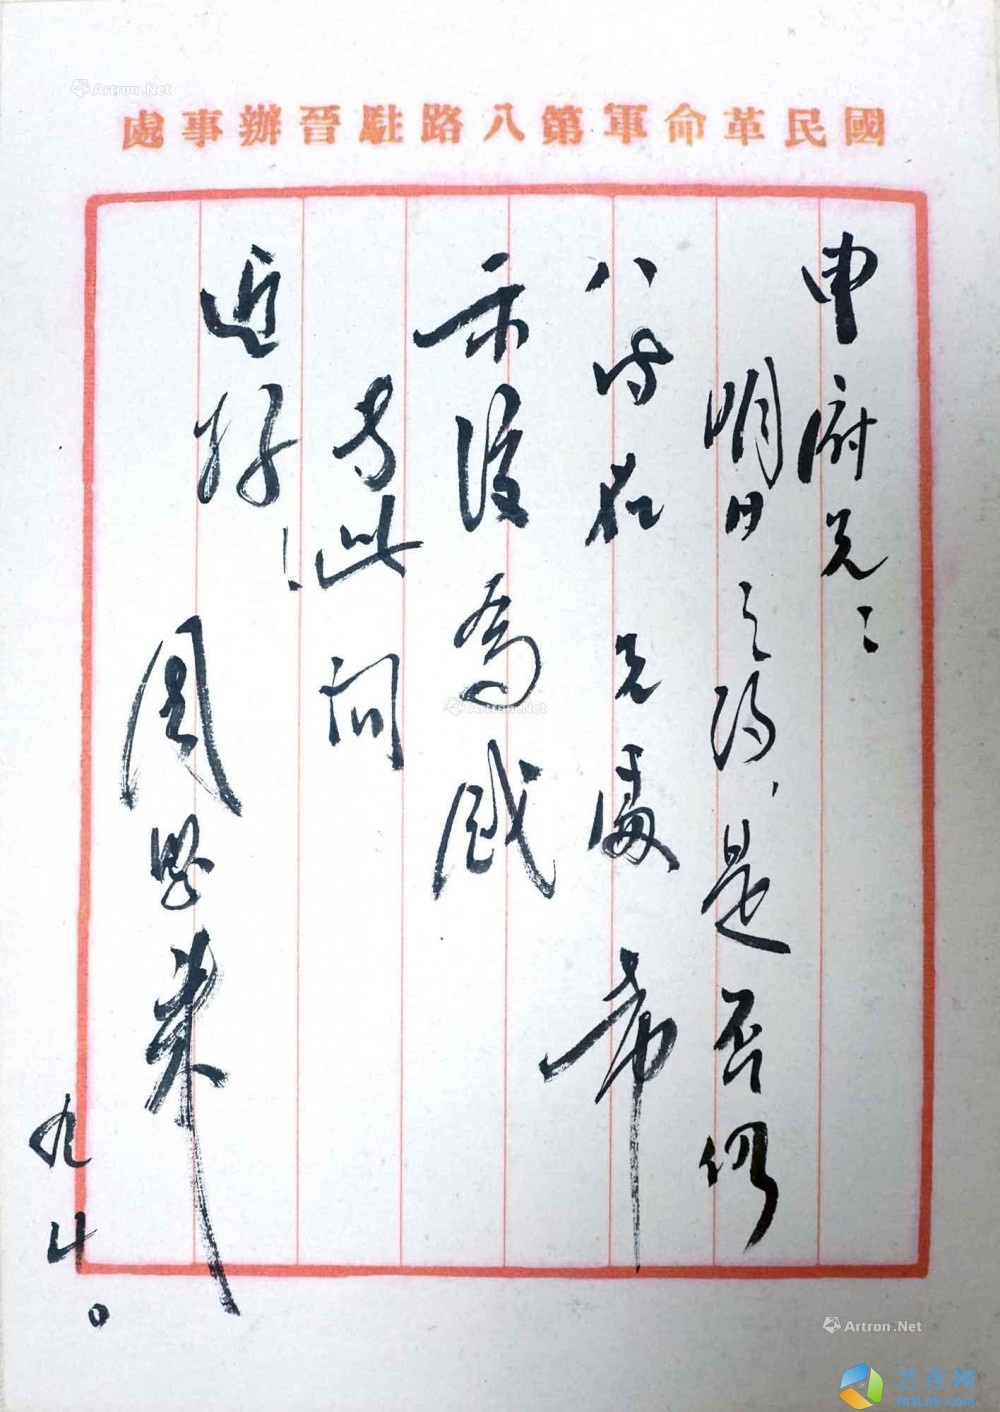 國民革命軍第八路駐晉辦事處
申府兄：
明日之約，是否仍
八時在 兄處 希
示復為感
专此问
近好！
周恩来
九
Artron.Net
Artron.Net
Artron.Net
ArtLnk.com